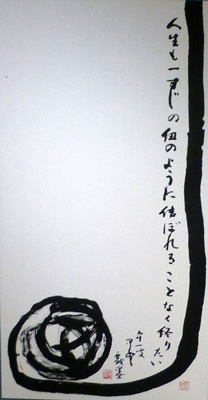 人生も一すじの紐のように結ぼれることなく終り
たい